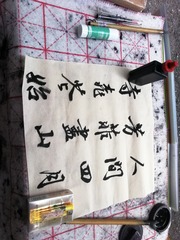 人间四月
芳菲盡山
寺桃花始